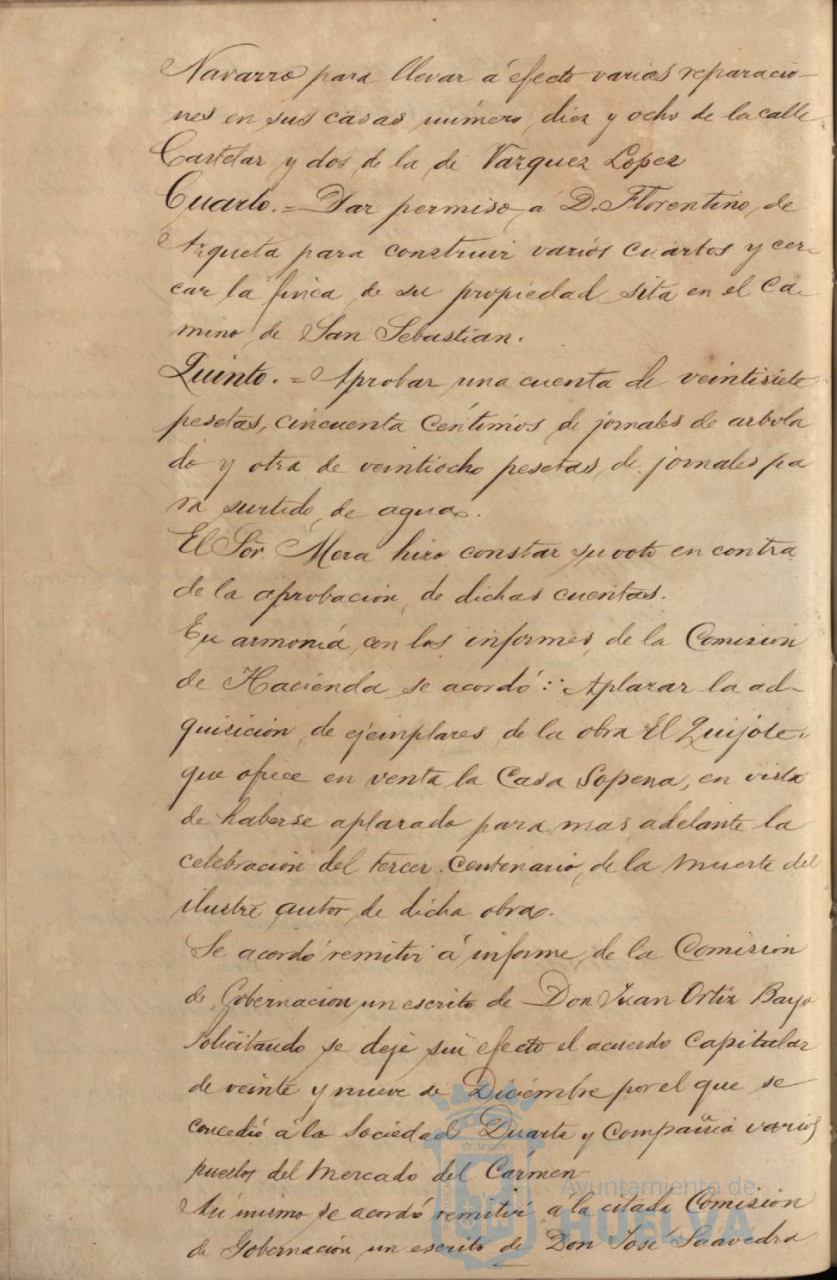 Navarro para llevar á efecto varias reparacio-
nes en sus casas número, diez y ocho de la calle
Castelar y dos de la de Vazquez Lopez
Cuarto.= Dar permiso á D. Florentino, de
Azqueta para construir varios cuartos y cer-
car la finca de su propiedad sita en el Ca-
mino de San Sebastian.
Quinto.= Aprobar una cuenta de veintisiete
pesetas, cincuenta céntimos de jornales de arbola
do y otra de veintiocho pesetas, de jornales pa
ra surtido de aguas.
El Sor. Mora hizo constar su voto en contra
de la aprobación, de dichas cuentas.
En armonía con los informes, de la Comisión
de Hacienda se acordó: Aplazar la ad-
quisición de ejemplares de la obra El Quijote,
que ofrece en venta la Casa Sopena, en vista
de haberse aplazado para mas adelante la
celebración del tercer Centenario, de la muerte del
ilustre autor de dicha obra.
Se acordó remitir á informe, de la Comisión
de Gobernacion un escrito de Don Juan Ortiz Bayo
solicitando se deje sin efecto el acuerdo Capitular
de veinte y nueve de Diciembre por el que se
concedió á la Sociedad Duarte y Compañia varios
puestos del Mercado del Carmen
Así mismo se acordó remitir á la citada Comisión
de Gobernación un escrito de Don José Saavedra
Ayuntamiento de
HUELVA